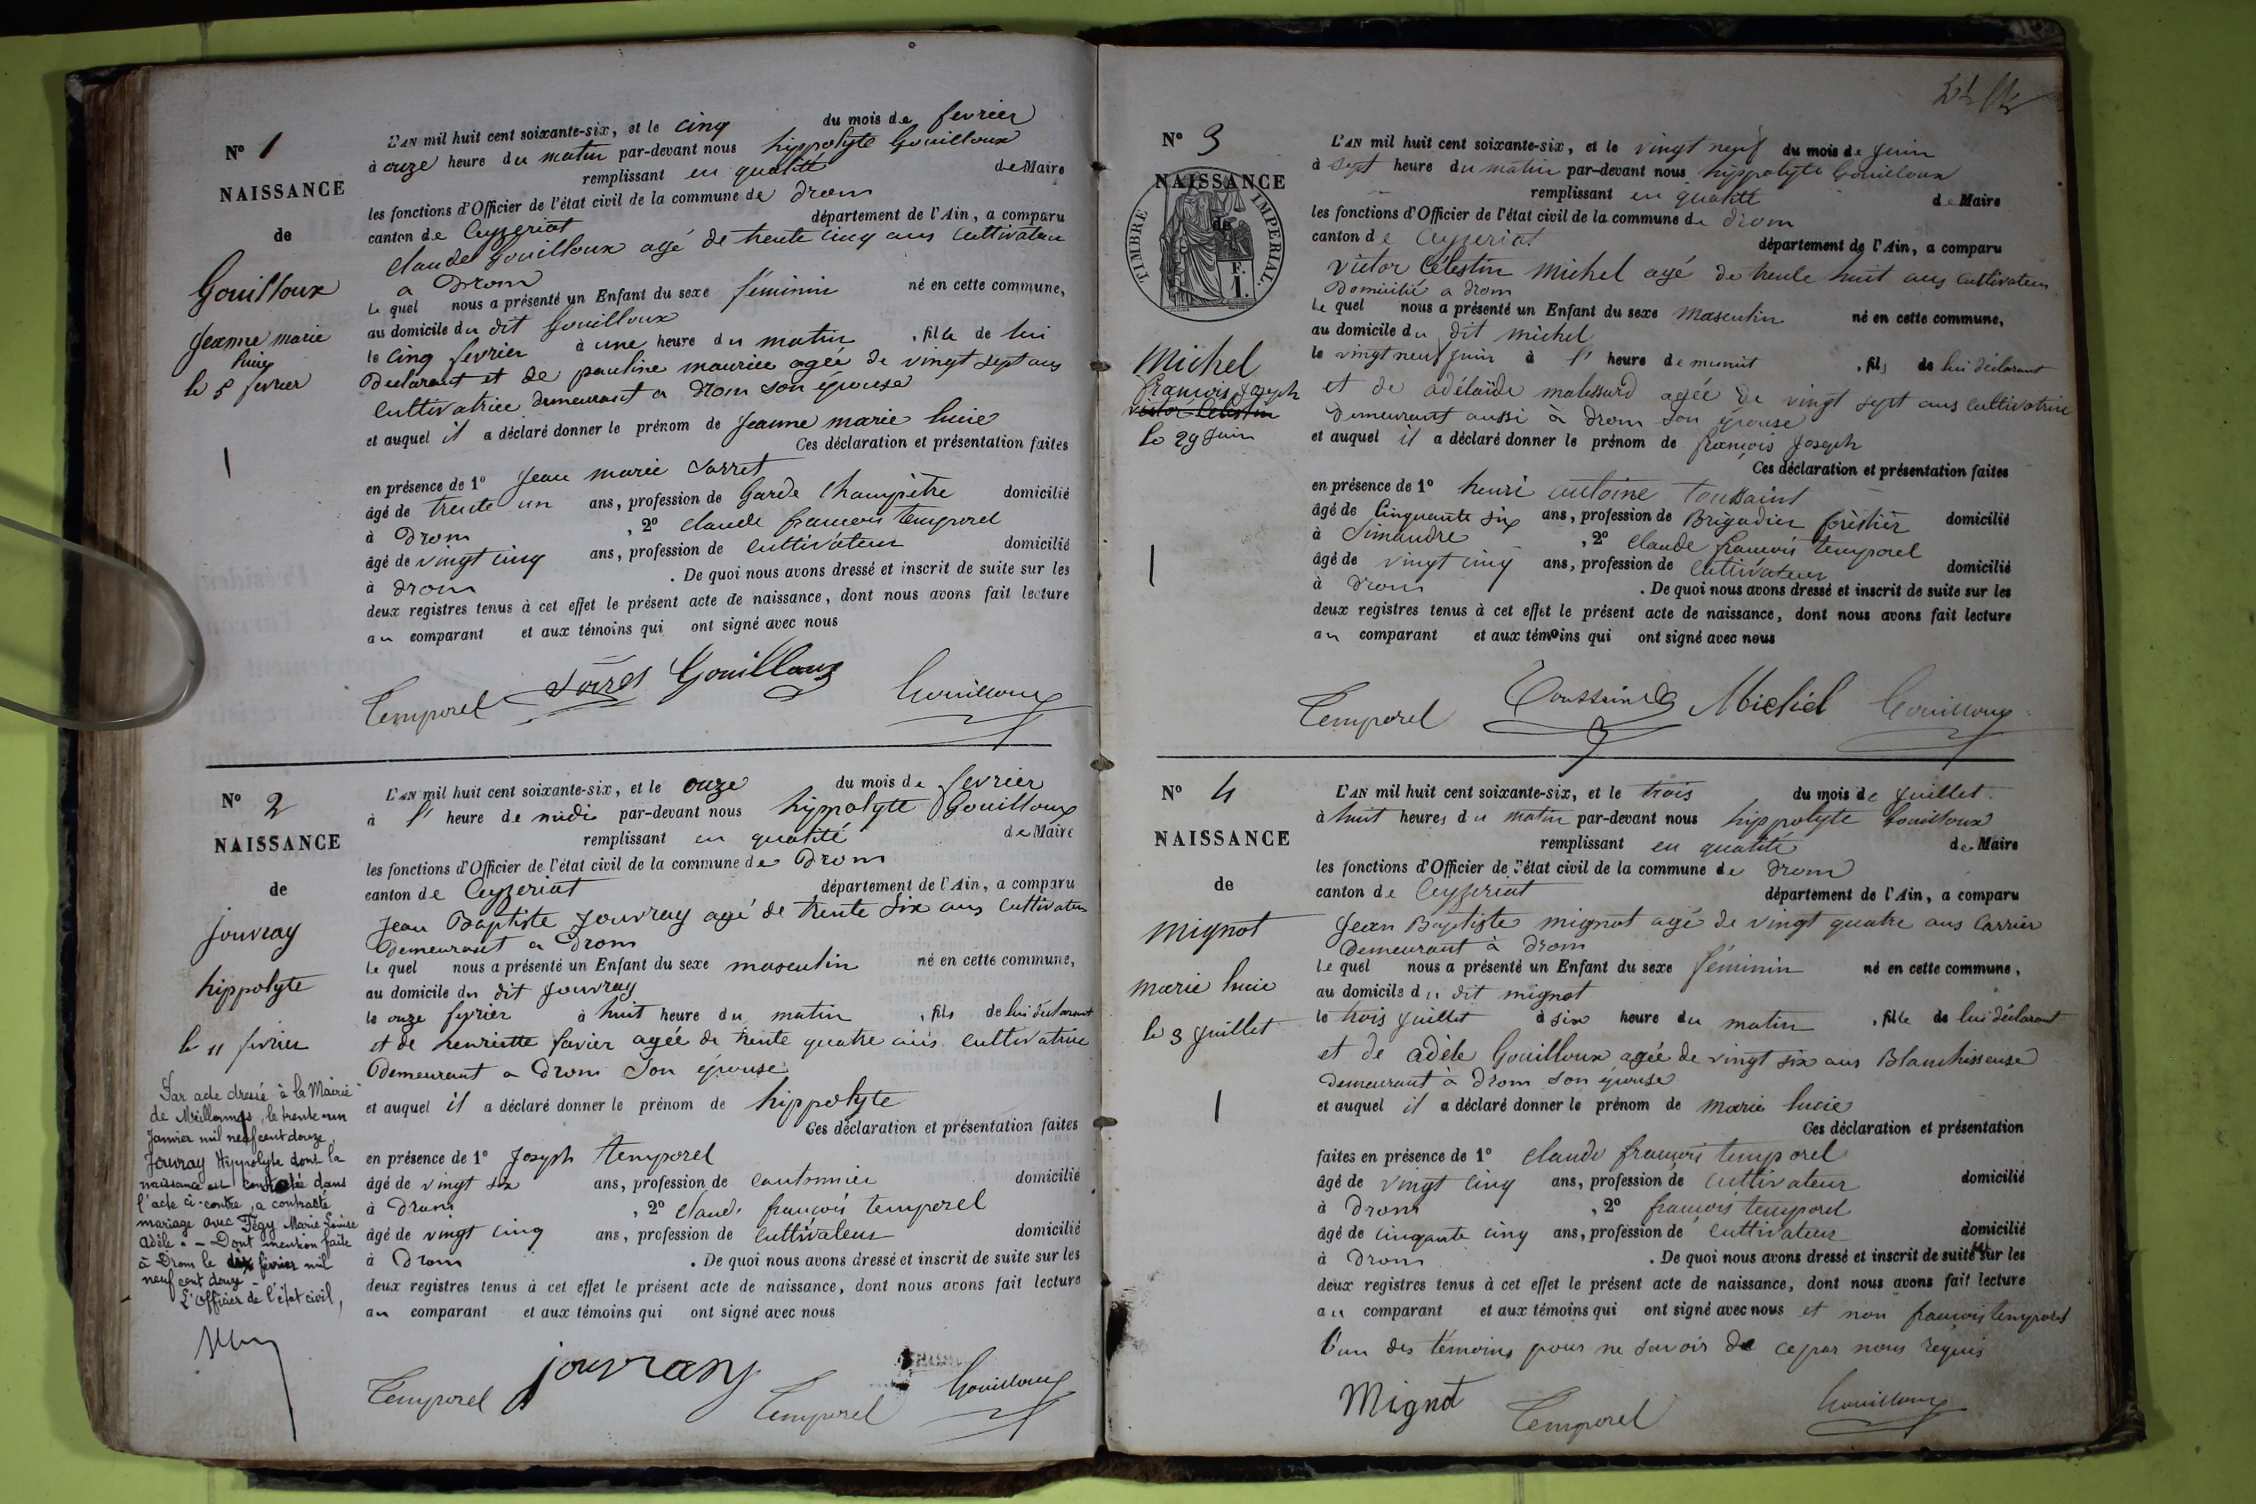 N° 1
NAISSANCE
de
Gouilloux
Jeanne marie
lucie
le 5 fevrier
1
L'AN mil huit cent soixante-six, et le cinq du mois de fevrier
à onze heure du matin par-devant nous hippolyte Gouilloux
remplissant en qualité de Maire
les fonctions d'Officier de l'état civil de la commune de drom
canton de Ceyzeriat département de l'Ain, a comparu
Claude gouilloux agé de trente cinq ans cultivateur
a Drom
Le quel nous a présenté un Enfant du sexe féminin né en cette commune,
au domicile du dit gouilloux
le cinq fevrier à une heure du matin, fille de lui
Declarant et de pauline maurice agée de vingt sept ans
cultivatrice demeurant a Drom son épouse
et auquel il a déclaré donner le prénom de Jeanne marie lucie
Ces déclaration et présentation faites
en présence de 1° Jean marie Sorret
âgé de trente un ans, profession de Garde Champêtre domicilié
à Drom, 2° claude francois temporel
âgé de vingt cinq ans, profession de cultivateur domicilié
à drom. De quoi nous avons dressé et inscrit de suite sur les
deux registres tenus à cet effet le présent acte de naissance, dont nous avons fait lecture
au comparant et aux témoins qui ont signé avec nous
Temporel Gouilloux Gouilloux
N° 2
NAISSANCE
de
jouvray
hippolyte
le 11 fevrier
Par acte dressé à la Mairie
de Meillonnas, le trente-un
Janvier mil neuf cent douze,
Jouvray Hippolyte dont la
naissance est constatée dans
l'acte ci-contre, a contracté
mariage avec Tégy Marie Louise
Adèle. - Dont mention faite
à Drom le février mil
neuf cent douze.
L'officier de l'état civil,
L'AN mil huit cent soixante-six, et le onze du mois de fevrier
à l' heure de midi par-devant nous hippolyte Gouilloux
remplissant en qualité de Maire
les fonctions d'Officier de l'état civil de la commune de Drom
canton de Ceyzeriat département de l'Ain, a comparu
Jean Baptiste jouvray agé de trente six ans cultivateur
Demeurant a Drom
Le quel nous a présenté un Enfant du sexe masculin né en cette commune,
au domicile du dit jouvray
le onze fevrier à huit heure du matin, fils de lui declarant
et de henriette favier agée de trente quatre ans cultivatrice
Demeurant a Drom son épouse
et auquel il a déclaré donner le prénom de hippolyte
Ces déclaration et présentation faites
en présence de 1° Joseph temporel
âgé de vingt six ans, profession de cantonnier domicilié
à Drom, 2° claude francois temporel
âgé de vingt cinq ans, profession de cultivateur domicilié
à Drom. De quoi nous avons dressé et inscrit de suite sur les
deux registres tenus à cet effet le présent acte de naissance, dont nous avons fait lecture
au comparant et aux témoins qui ont signé avec nous
Temporel jouvray Temporel Gouilloux
N° 3
NAISSANCE
de
TIMBRE IMPERIAL.
F.
1.
Michel
francois Joseph
victor Celestin
le 29 Juin
1
L'AN mil huit cent soixante-six, et le vingt neuf du mois de Juin
à sept heure du matin par-devant nous hyppolyte Gouilloux
remplissant en qualité de Maire
les fonctions d'Officier de l'état civil de la commune de drom
canton de Ceyzeriat département de l'Ain, a comparu
victor Célestin Michel agé de trente huit ans cultivateur
Domicilié a drom
Le quel nous a présenté un Enfant du sexe masculin né en cette commune,
au domicile du dit michel
le vingt neuf Juin à l' heure de minuit, fils de lui déclarant
et de adélaïde malessard agée de vingt sept ans cultivatrice
Demeurant aussi à Drom son épouse
et auquel il a déclaré donner le prénom de françois Joseph
Ces déclaration et présentation faites
en présence de 1° henri antoine toussaint
âgé de Cinquante six ans, profession de Brigadier forestier domicilié
à Simandre, 2° claude françois temporel
âgé de vingt cinq ans, profession de cultivateur domicilié
à Drom. De quoi nous avons dressé et inscrit de suite sur les
deux registres tenus à cet effet le présent acte de naissance, dont nous avons fait lecture
au comparant et aux témoins qui ont signé avec nous
Temporel Toussaint Michel Gouilloux
N° 4
NAISSANCE
de
Mignot
marie lucie
le 3 Juillet
1
L'AN mil huit cent soixante-six, et le trois du mois de Juillet
à huit heures du matin par-devant nous hippolyte Gouilloux
remplissant en qualité de Maire
les fonctions d'Officier de l'état civil de la commune de drom
canton de Ceyzeriat département de l'Ain, a comparu
Jean Baptiste mignot agé de vingt quatre ans Carrier
Demeurant à Drom
Le quel nous a présenté un Enfant du sexe féminin né en cette commune,
au domicile du dit mignot
le trois Juillet à six heure du matin, fille de lui déclarant
et de adèle Gouilloux agée de vingt six ans Blanchisseuse
Demeurant à Drom son épouse
et auquel il a déclaré donner le prénom de marie lucie
Ces déclaration et présentation
faites en présence de 1° claude françois temporel
âgé de vingt cinq ans, profession de cultivateur domicilié
à Drom, 2° françois temporel
âgé de cinqante cinq ans, profession de cultivateur domicilié
à Drom. De quoi nous avons dressé et inscrit de suite sur les
deux registres tenus à cet effet le présent acte de naissance, dont nous avons fait lecture
au comparant et aux témoins qui ont signé avec nous et non françois temporel
l'un des témoins pour ne savoir de ce par nous requis
Mignot Temporel Gouilloux